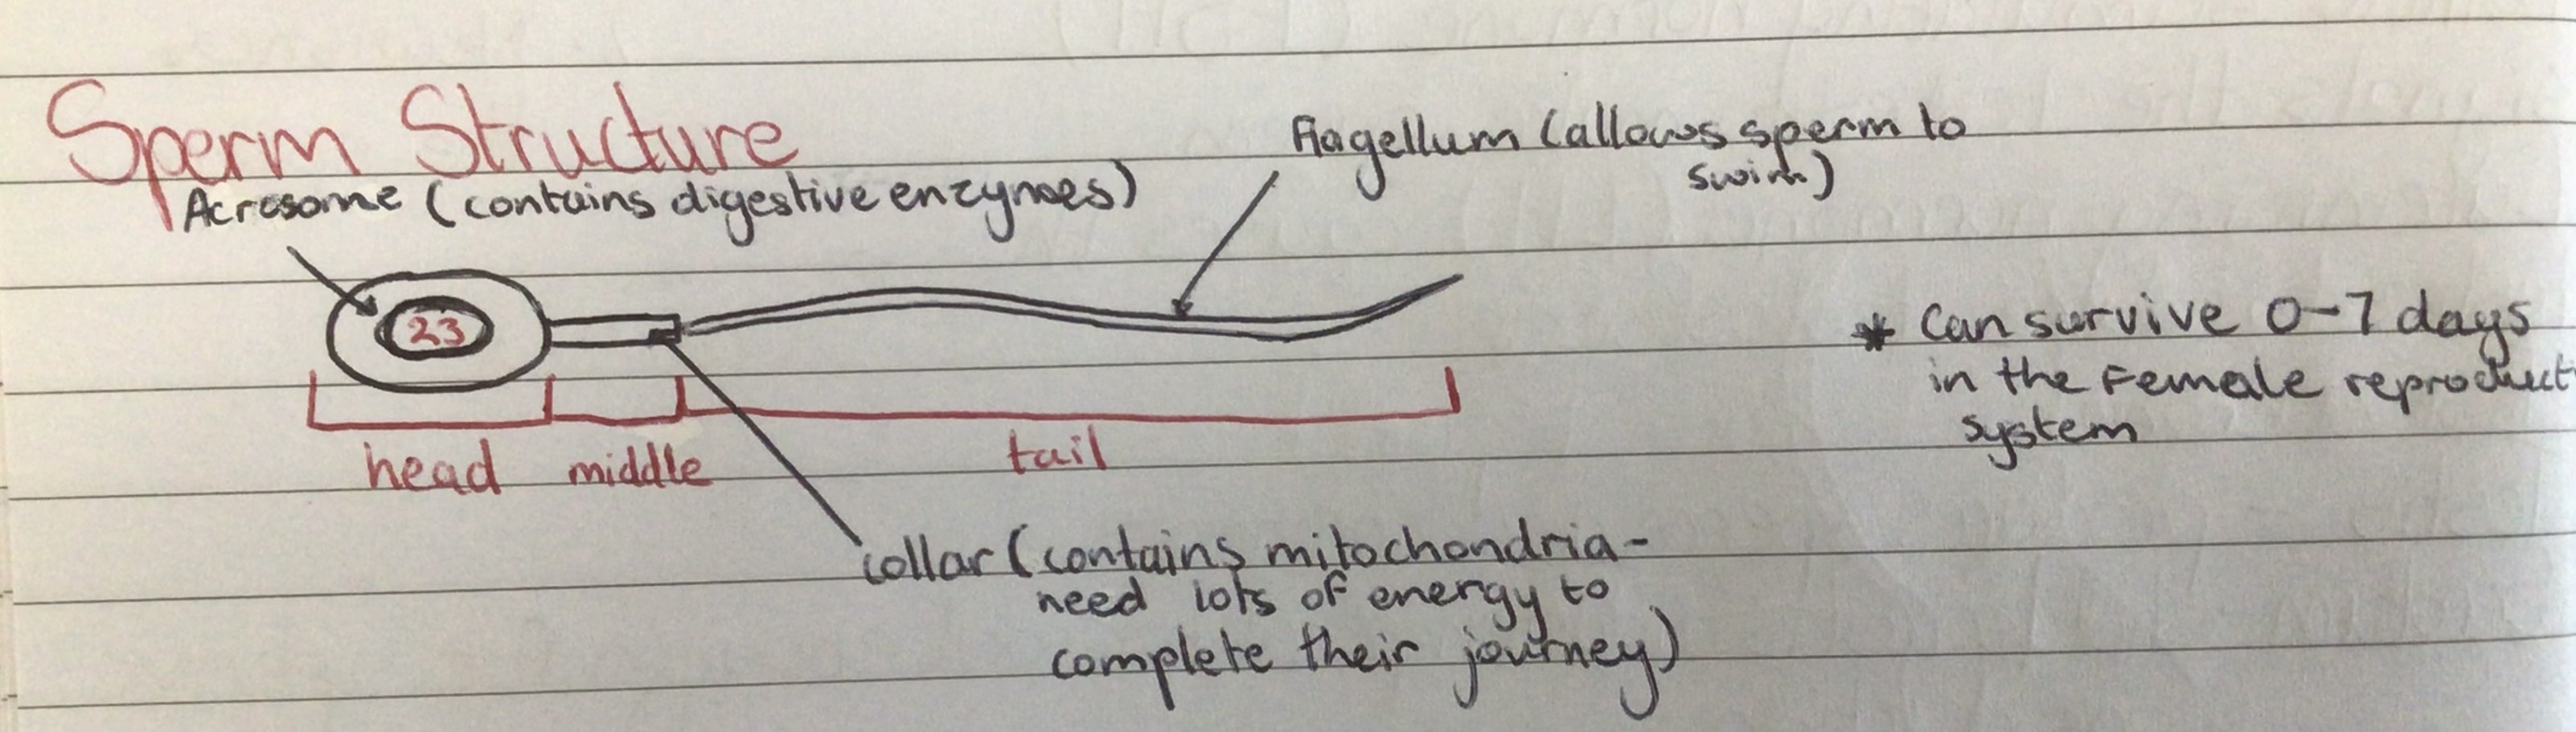 Sperm Structure
Acrosome (contains digestive enzymes)
flagellum (allows sperm to
swim)
23
* Can survive 0-7 days
in the Female reproduct
system
head middle tail
collar (contains mitochondria-
need lots of energy to
complete their journey)